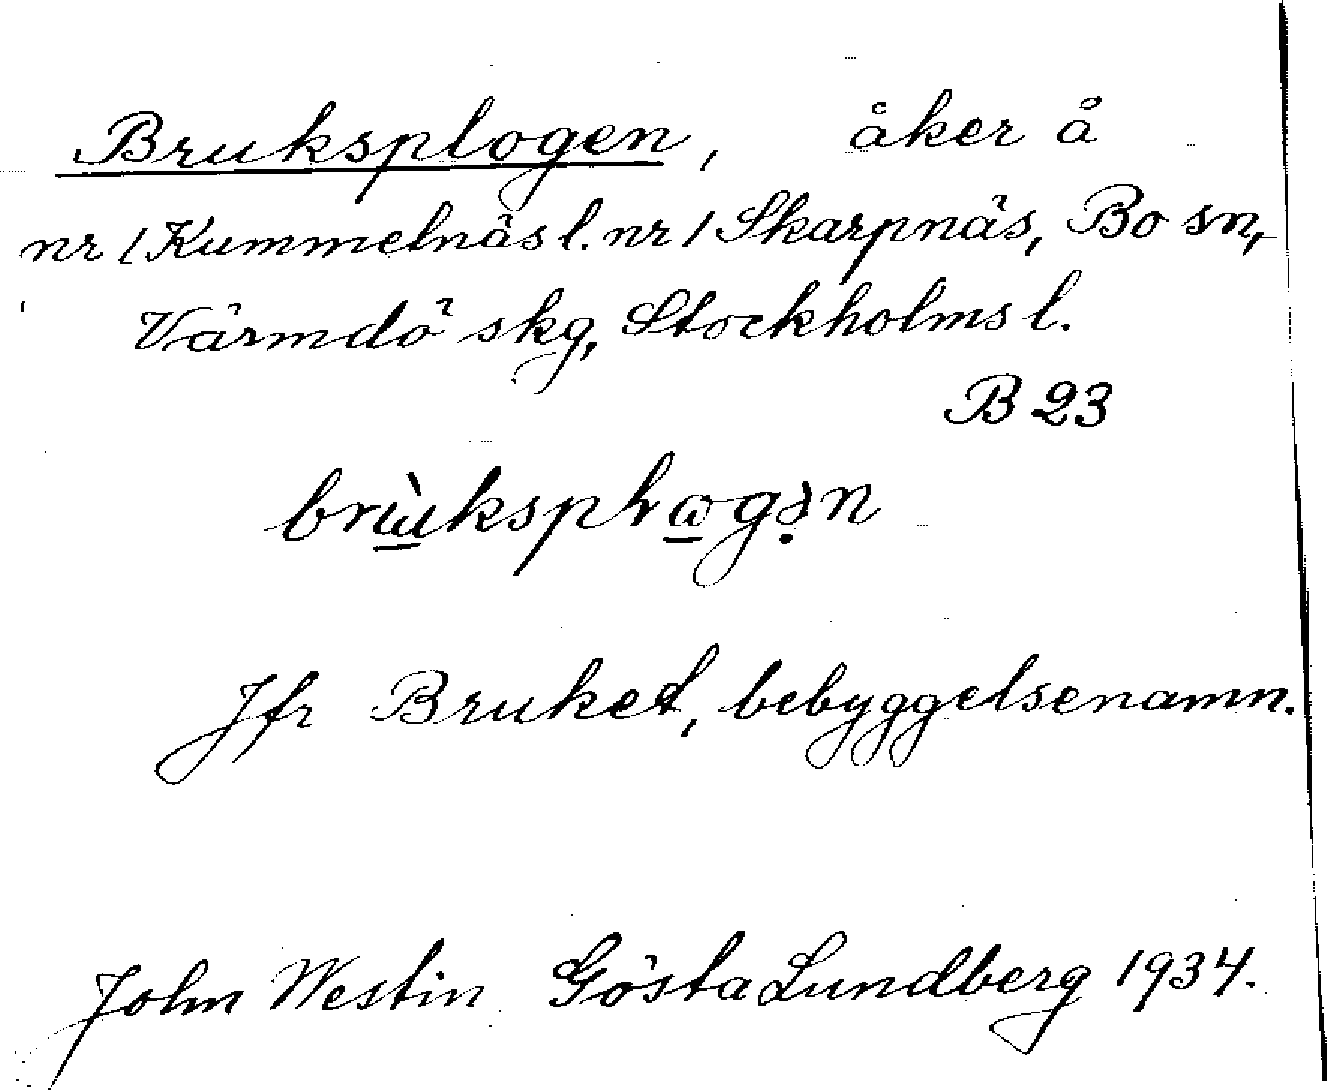 Bruksplogen, åker å
nr 1 Kummelnäs l. nr 1 Skarpnäs, Bo sn,
Värmdö skg, Stockholms l.
B 23
Jfr Bruket, bebyggelsenamn.
John Westin Gösta Lundberg 1934.